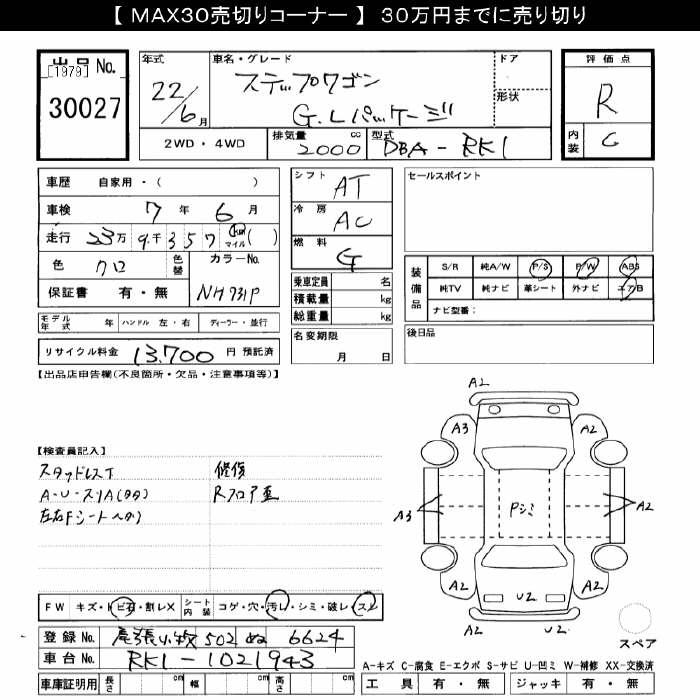 【 MAX30売切りコーナー 】 30万円までに売り切り
出品 No.
[1979]
30027
年式
22/6月
車名・グレード
ステップワゴン
G.Lパッケージ
ドア
形状
評価点
R
内装
C
2WD・4WD
排気量
2000 cc
型式
DBA-RK1
車歴 自家用・( )
車検 7年6月
走行 23万9千357 km マイル ( )
色 クロ
色替
カラーNo.
NH731P
保証書 有・無
シフト AT
冷房 AC
燃料 G
乗車定員 名
積載量 kg
総重量 kg
セールスポイント
装備品
S/R 純A/W P/S P/W ABS
純TV 純ナビ 革シート 外ナビ エアB
ナビ型番:
モデル年式 年 ハンドル 左・右 ディーラー・並行
リサイクル料金 13,700 円 預託済
名変期限
月 日
後日品
【出品店申告欄(不良箇所・欠品・注意事項等)】
【検査員記入】
スタッドレスT
A・U・スリA(タタ)
左右Fシートヘタリ
修復
Rフロア歪
A2
A3
A2
A3
Pシミ
A2
A2
A2
U2
A2
U2
スペア
FW キズ・トビ石・割レX
シート内装 コゲ・穴・汚レ・シミ・破レ・スレ
登録 No. 尾張小牧 502 ぬ 6624
車台 No. RK1-1021943
車庫証明用 長さ cm 幅 cm 高さ cm
A-キズ C-腐食 E-エクボ S-サビ U-凹ミ W-補修 XX-交換済
工具 有・無 ジャッキ 有・無